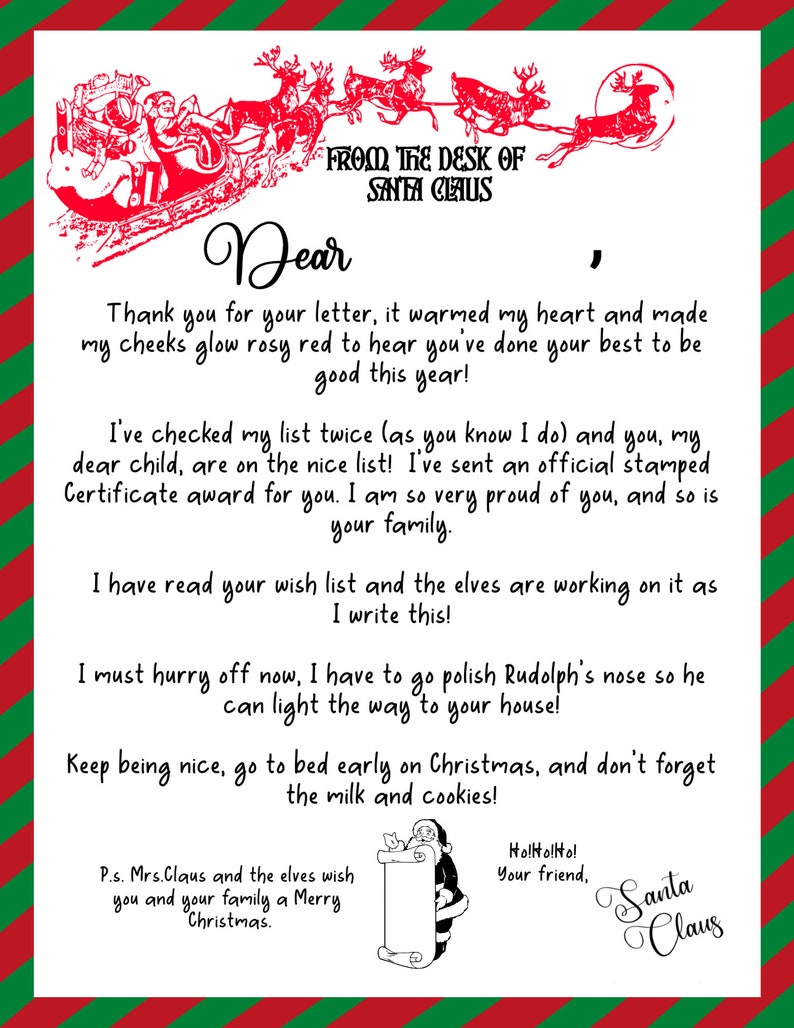 FROM THE DESK OF
SANTA CLAUS
Dear ,
Thank you for your letter, it warmed my heart and made
my cheeks glow rosy red to hear you've done your best to be
good this year!
I've checked my list twice (as you know I do) and you, my
dear child, are on the nice list! I've sent an official stamped
Certificate award for you. I am so very proud of you, and so is
your family.
I have read your wish list and the elves are working on it as
I write this!
I must hurry off now, I have to go polish Rudolph's nose so he
can light the way to your house!
Keep being nice, go to bed early on Christmas, and don't forget
the milk and cookies!
P.s. Mrs.Claus and the elves wish
you and your family a Merry
Christmas.
Ho!Ho!Ho!
Your friend,
Santa
Claus